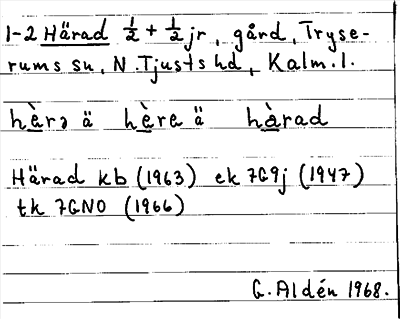 1-2 Härad ½ + ½ jr, gård, Tryse-
rums sn, N. Tjusts hd, Kalm. l.
hèrə ä hère ä hàrad
Härad kb (1963) ek 7G9j (1947)
tk 7GNO (1966)
G. Aldén 1968.